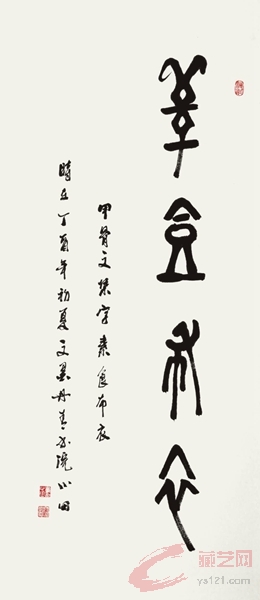 素食布衣
甲骨文集字素食布衣
時在丁酉年初夏文墨丹青书院小田
藏艺网
ys121.com